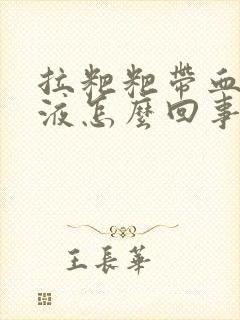 拉粑粑帶血
液怎麼回事
王長華